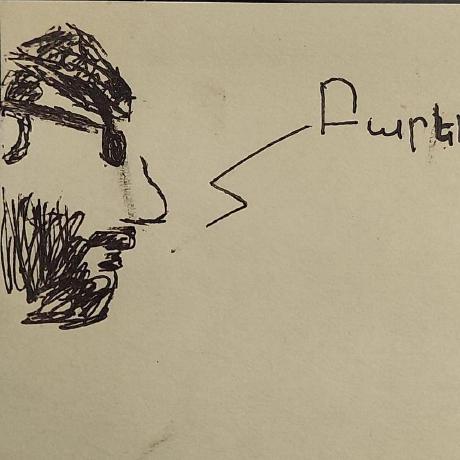 Բարեւ